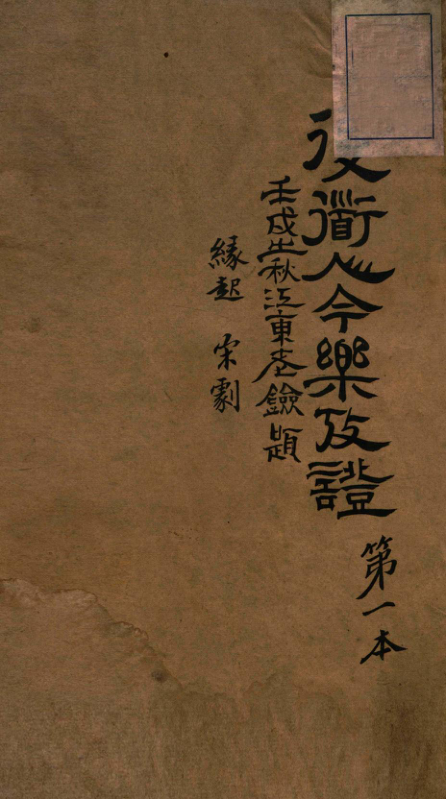 復衟人今樂攷證 第一本
壬戌㞢秋江東老鐱題
緣起 宋劇